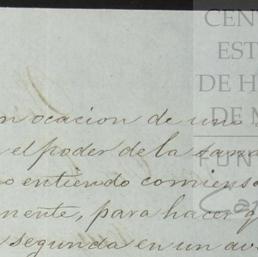 CEN
EST
DE H
DE M
FUN
Car
n ocacion de una
el poder de la
o entiendo comiensa
nente, para hacer q
segunda en un av